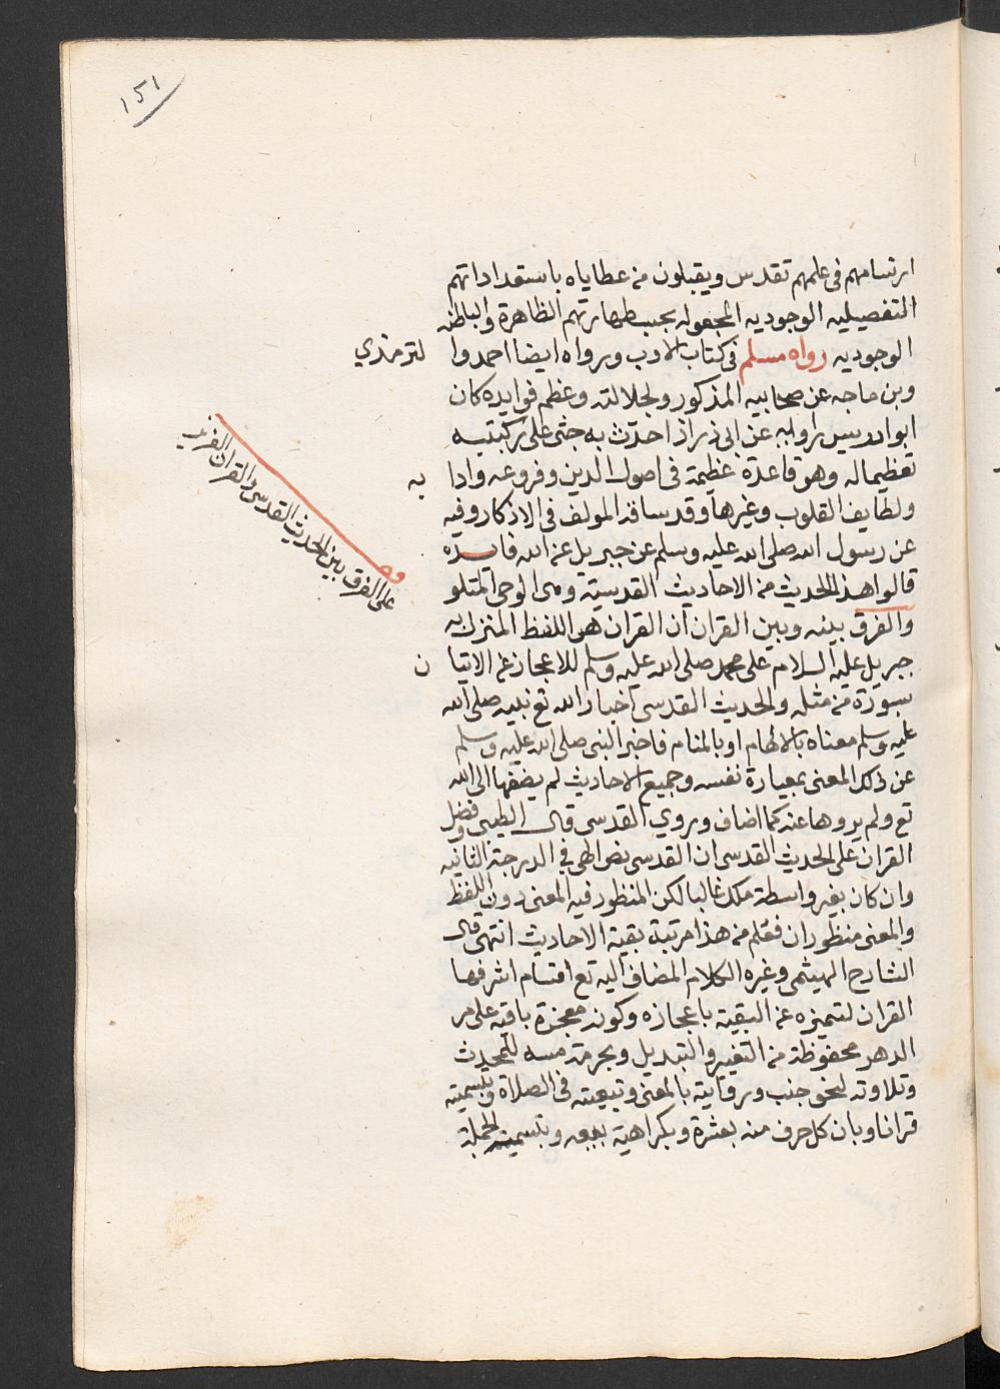 ١٥١
ارتسامهم في علمهم تقدس ويقبلون من عطاياه باستعداداتهم
التفصيليه الوجوديه المجعوله بحسب طهارتهم الظاهرة والباطنه
الوجوديه رواه مسلم في كتاب الادب ورواه ايضا احمد وا لترمذي
وبن ماجه عن صحابيه المذكور ولجلالته وعظم فوايده كان
ابو ادريس راويه عن ابي ذر اذا حدث به جثى على ركبتيه
تعظيما له وهو قاعدة عظيمة في اصول الدين وفروعه وادابه
ولطايف القلوب وغيرها وقد ساقه المولف في الاذكار وفيه
عن رسول الله صلى الله عليه وسلم عن جبريل عن الله فايده
قالوا هذا الحديث من الاحاديث القدسية وهي الوحي المتلو
والفرق بينه وبين القران ان القران هو اللفظ المنزل به
جبريل عليه السلام على محمد صلى الله عليه وسلم للاعجاز عن الاتيا ن
بسورة من مثله والحديث القدسي اخبار الله تع نبيه صلى الله
عليه وسلم معناه بالالهام او بالمنام فاخبر النبي صلى الله عليه وسلم
عن ذلك المعنى بعبارة نفسه وجميع الاحاديث لم يضفها الى الله
تع ولم يروها عنه كما اضاف وروي القدسي قال الطيبي وفضل
القران على الحديث القدسي ان القدسي نص الهي في الدرجة الثانيه
وان كان بغير واسطة ملك غالبا لكن المنظور فيه المعنى دون اللفظ
والمعنى منظوران فعلم من هذا مرتبة بقية الاحاديث انتهى قال
الشارح الهيثمي وغيره الكلام المضاف اليه تع اقسام اشرفها
القران لتميزه عن البقية باعجازه وكونه معجزة باقيه على مر
الدهر محفوظة من التغيير والتبديل وبحرمة مسه للمحدث
وتلاوته لنحو جنب وروايته بالمعنى وتبعيته في الصلاة وبتسميته
قرانا وبان كل حرف منه بعشرة وبكراهية بيعه وبتسميته الجملة
على الفرق بين الحديث القدسي والقران الفريد